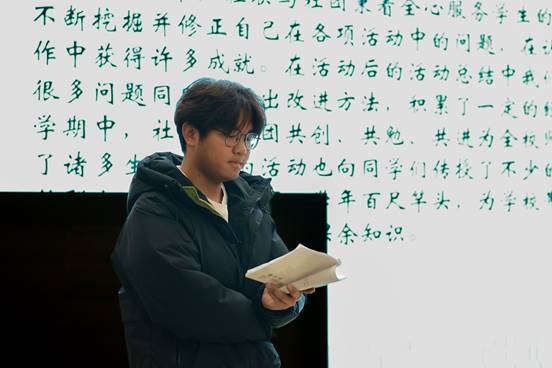 社联与社团秉着全心服务学生的
不断挖掘并修正自己在各项活动中的问题，在
作中获得许多成就。在活动后的活动总结中我
很多问题同 出改进方法，积累了一定的
学期中，社 团共创、共勉、共进为全校
了诸多生 的活动也向同学们传授了不少的
年百尺竿头，为学校
余知识。